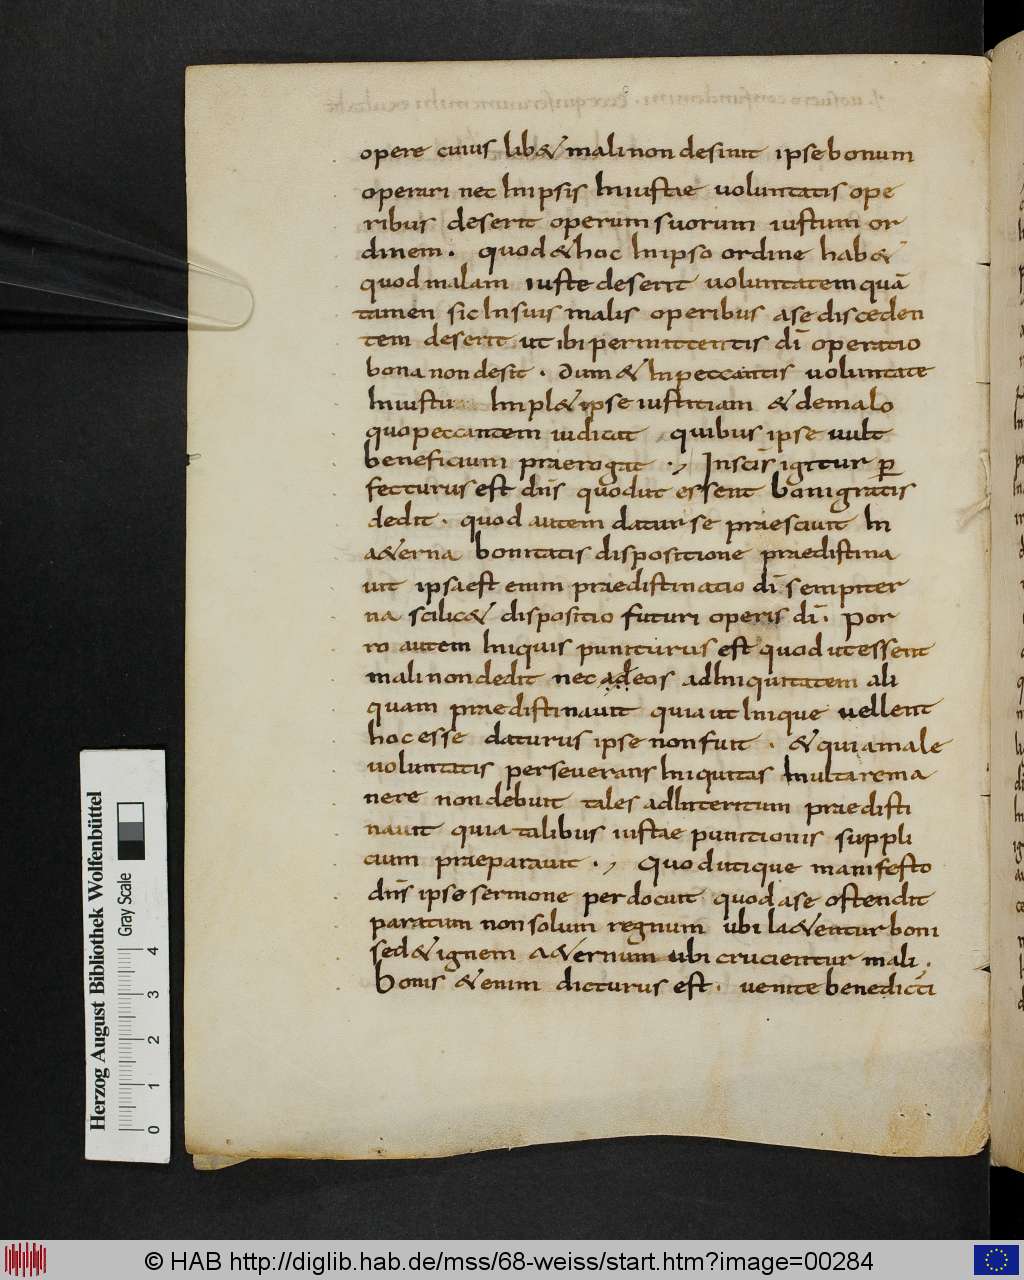 opere cuius lib& mali non desinit ipse bonum
operari nec In ipsis Iniustae uoluntatis ope
ribus deserit operum suorum iustum or
dinem. quod & hoc In ipso ordine hab&
quod malam iuste deserit uoluntatem quā
tamen sic In suis malis operibus a se disceden
tem deserit ut ibi permittentis dī operatio
bona non desit. dum & In peccantis uoluntate
Iniustu Inpl& ipse iustitiam & de malo
quo peccantem iudicat, quibus ipse uult
beneficium praerogat ., In scīs igitur ꝑ
fecturus est dn̄s quod ut essent boni gratis
dedit. quod autem datur se praesciuit In
a&erna bonitatis dispositione praedistina
uit ipsa est enim praedistinatio dī sempiter
na scilic& dispositio futuri operis dī. Por
ro autem Iniquis puniturus est quod ut essent
mali non dedit nec ad eos ad Iniquitatem ali
quam praedistinauit quia ut Inique uellent
hoc esse daturus ipse non fuit. & quia male
uoluntatis perseuerans Iniquitas Inulta rema
nere non debuit tales ad Interitum praedisti
nauit quia talibus iustae punitionis suppli
cium praeparauit ., Quod utique manifesto
dn̄s ipse sermone perdocuit quod a se ostendit
paratum non solum regnum ubi la&entur boni
sed & ignem a&ernum ubi crucientur mali.
Bonis &enim dicturus est. uenite benedicti
Herzog August Bibliothek Wolfenbüttel
Gray Scale
0 1 2 3 4
© HAB http://diglib.hab.de/mss/68-weiss/start.htm?image=00284